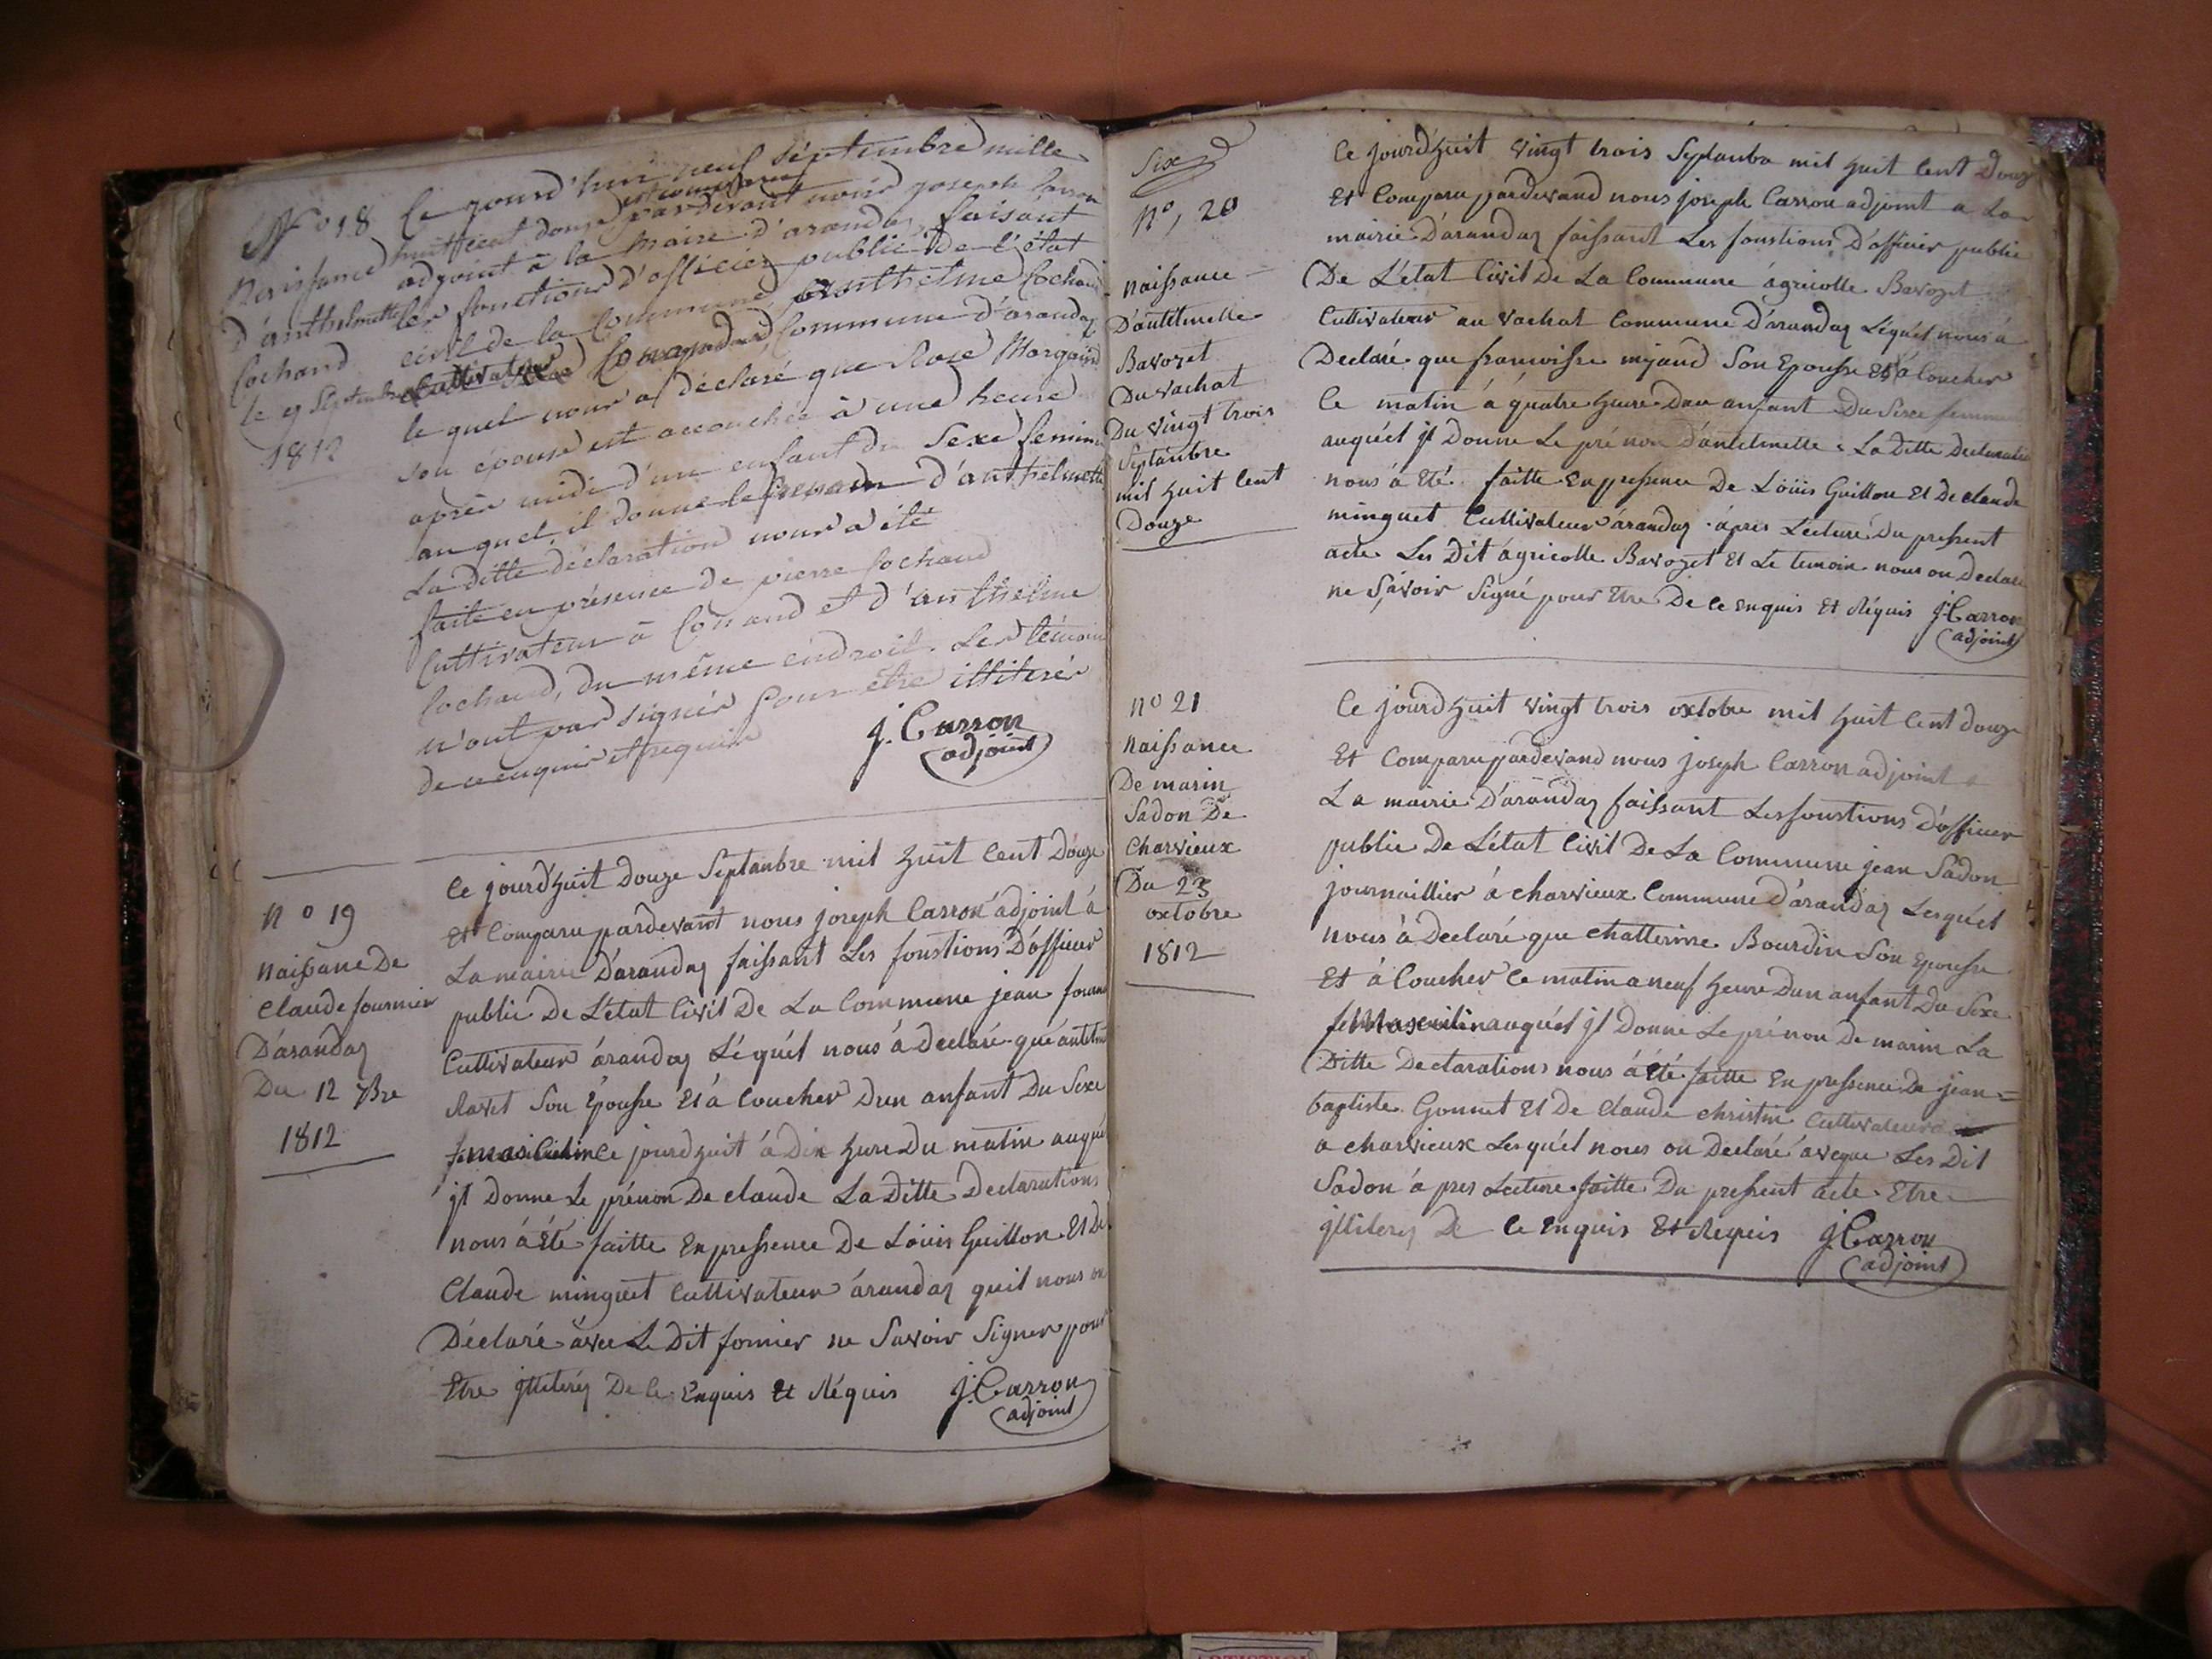 N° 18
Naissance
d'anthelmette
Cochand
le 9 Septembre
1812
Ce jourd'hui neuf septembre mille
est comparu
huit cent douze pardevant nous joseph Carron
adjoint à la mairie d'arandas faisant
les fonctions d'officier public de l'état
civil de la Commune, anthelme Cochand
Cultivateur Conand Commune d'arandas
le quel nous a déclaré que Roze Margand
son épouse est accouchée à une heure
après midi d'un enfant du Sexe feminin
au quel il donne le prenom d'anthelmette
La ditte déclaration nous a été
faite en présence de pierre Cochand
Cultivateur à Conand et d'anthelme
Cochand, du même endroit. Les témoins
n'ont pas signés pour être illiterés
de ce enquis et requis J. Carron
adjoint
N° 19
Naissance De
Claude fournier
D'arandas
Du 12 7bre
1812
Ce jourd'huit Douze Septanbre mil huit Cent Douze
Et Comparu pardevant nous joseph Carron adjoint à
La mairie D'arandas faissant Les fonstions D'officier
public De L'etat Civil De La Commune jean
Cultivateur àrandas Léquél nous à declaré que
Ravet Son Epousse Et à Coucher Dun anfant Du Sexe
Ce jourd huit à Dix hure Du matin auquél
jl Donne Le prénon De claude La Ditte Declarations
nous à Eté faitte En pressence De Loüis Guillon Et De
Claude minguet Cultivateur àrandas quil nous on
Déclaré avec Le Dit fornier ne Savoir Signer pour
Etre jlliterés De Ce Enquis Et Réquis J. Carron
adjoint
Six
N°, 20
Naissance
D'antelmelle
Bavozet
Du vachat
Du vingt trois
Septanbre
mil huit Cent
Douze
Ce jourd'huit vingt trois Septanbr mil huit Cent Douze
Et Comparu pardevand nous joseph Carron adjoint a La
mairie D'arandas faissant Les fonstions D'officier public
De L'etat Civil De La Commune agricolle Bavozet
Cultivateur au vachat Commune D'arandas Léquél nous à
Declaré que francoisse mjaud Son Epousse Et à Coucher
Ce matin à quatre heure Dun anfant Du Sexe
auquél jl Donne Le pré non D'antelmelle. La Ditte Declaration
nous à Eté faitte En pressence De Loüis Guillon Et De claude
minguet Cultivateur àrandas. àpres Lecture Du pressent
acte Les Dit agricolle Bavozet Et Le temoin nous on Declaré
ne Savoir Signé pour Etre De Ce Enquis Et Réquis J. Carron
adjoint
N° 21
Naissance
De marin
Sadon De
Charvieux
Du 23
oxtobre
1812
Ce jourd huit vingt trois oxtobre mil huit Cent douze
Et Comparu pardevand nous joseph Carron adjoint a
La mairie D'arandas faissant Les fonstions D'officier
public De L'etat Civil De La Commune jean Sadon
journaillier à charvieux Commune D'arandas Lesquél
nous à Declaré que chatterinne Bourdin Son Epousse
Et à Coucher Ce matin a neuf heure Dun anfant Du Sexe
Masculin auquél jl Donne Le prénon De marin La
Ditte Declarations nous à Eté faitte En pressence De jean=
baptiste Gonnet Et De Claude christin Cultivateur
a charvieux Lesquél nous on Declaré avéque Les Dit
Sadon à pres Lecture faitte Du pressent acte Etre
jlliterés De Ce Enquis Et Requis J. Carron
adjoint